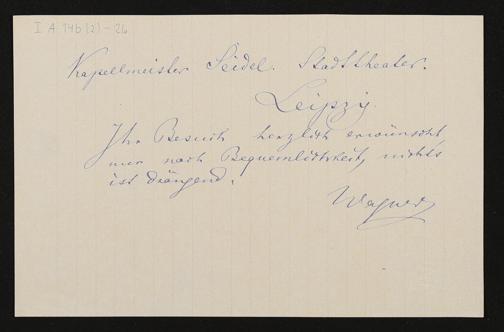 I A 14b(2)-26
Kapellmeister Seidel. Stadttheater.
Leipzig.
Ihr Besuch herzlich erwünscht,
nur nach Bequemlichkeit, nichts
ist drängend.
Wagner